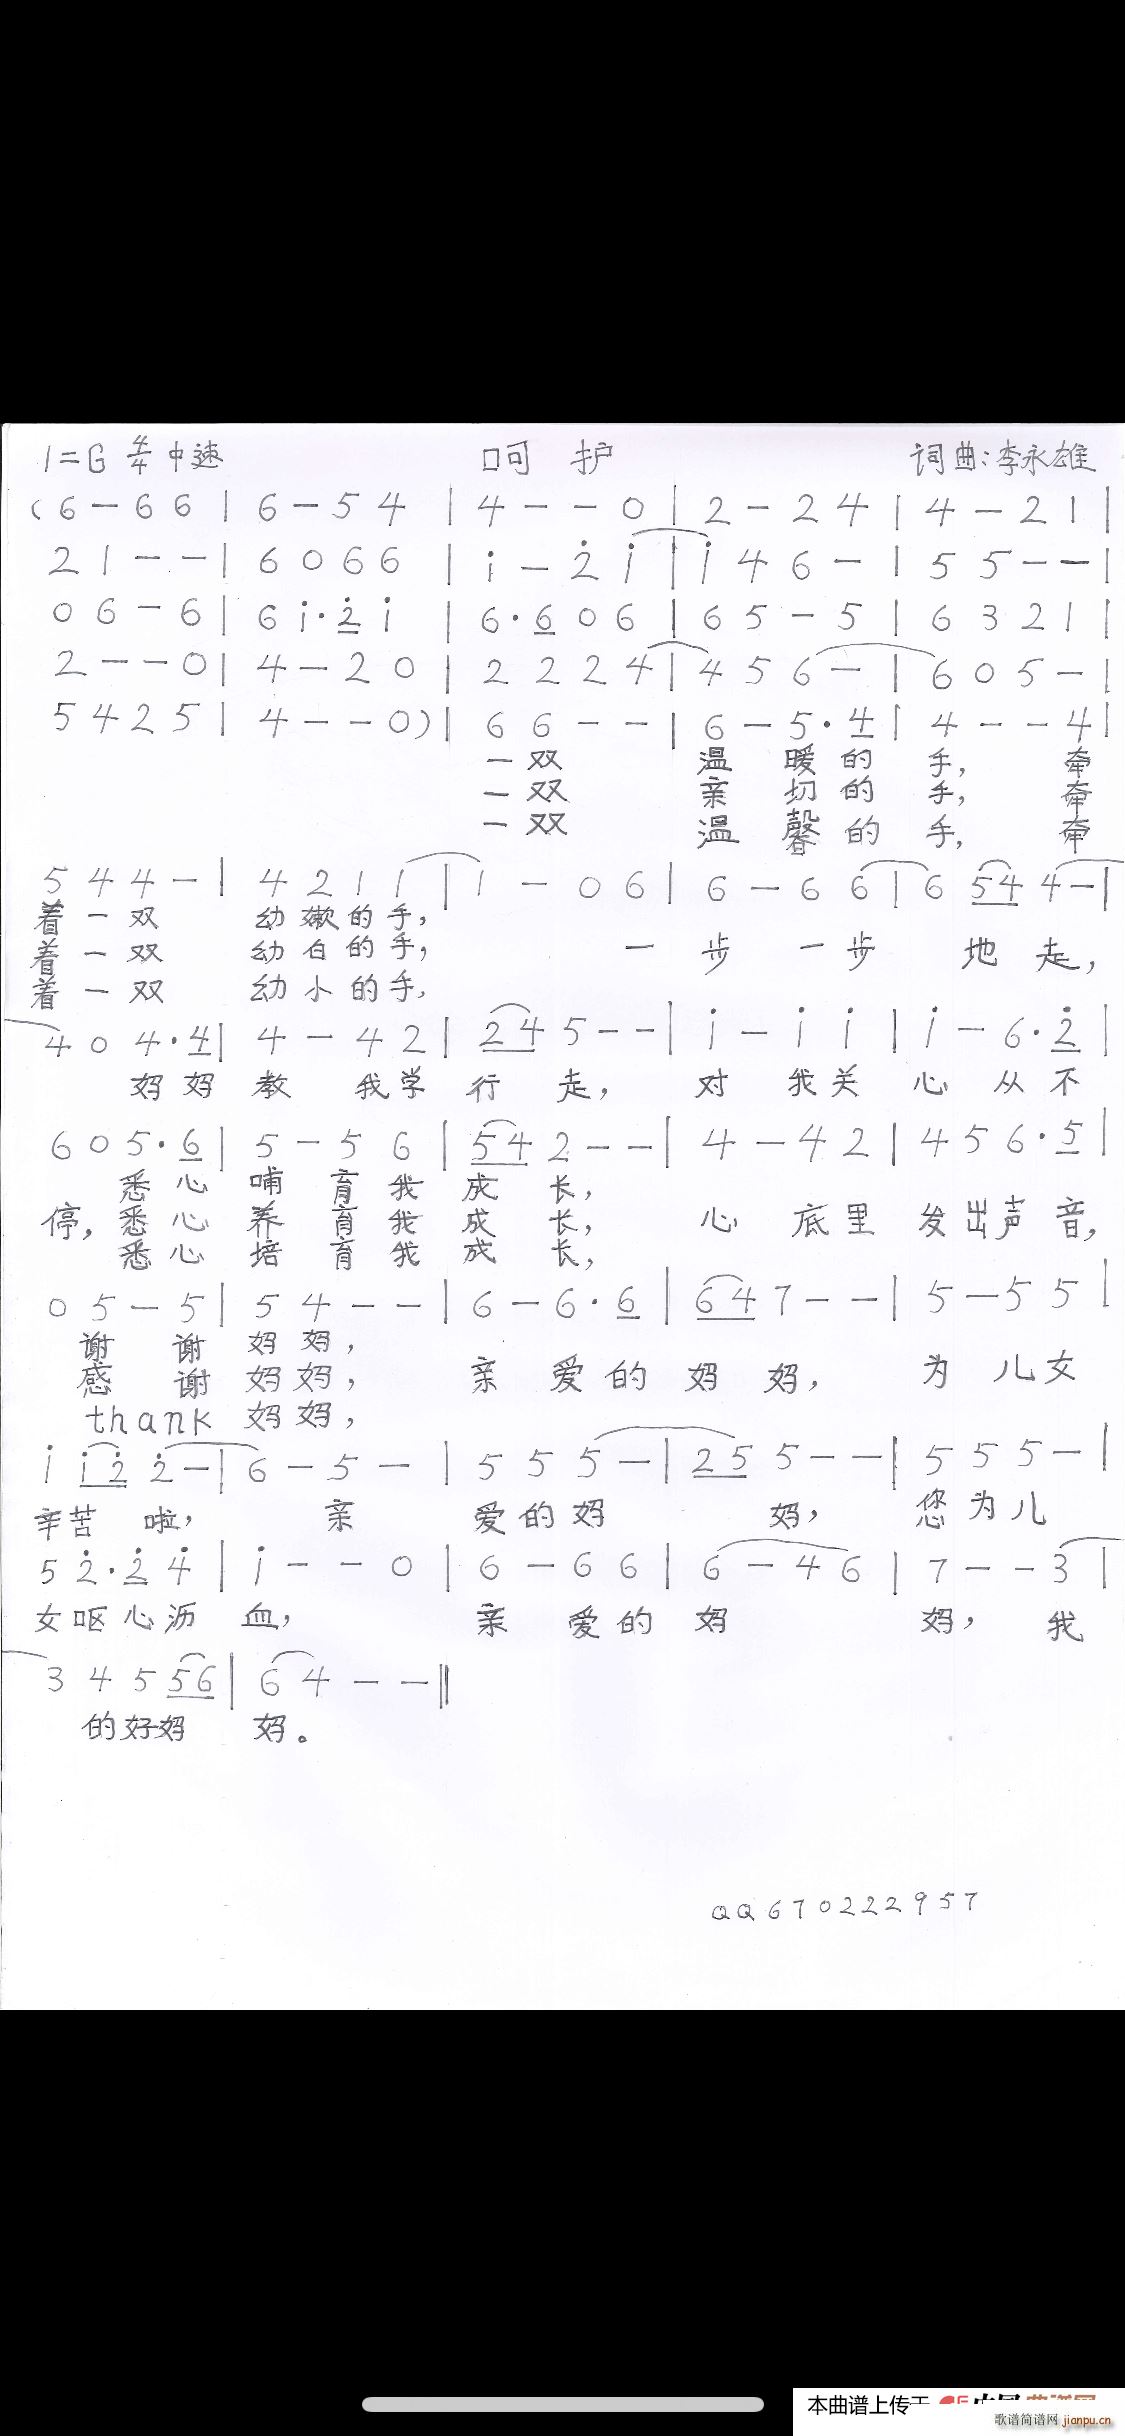 1=G 4/4 中速 呵护 词曲:李永雄
(6 - 6 6 | 6 - 5 4 | 4 - - 0 | 2 - 2 4 | 4 - 2 1 |
2 1 - - | 6 0 6 6 | i - 2̇ i | i 4 6 - | 5 5 - - |
0 6 - 6 | 6 i· 2̇ i | 6· 6 0 6 | 6 5 - 5 | 6 3 2 1 |
2 - - 0 | 4 - 2 0 | 2 2 2 4 | 4 5 6 - | 6 0 5 - |
5 4 2 5 | 4 - - 0) | 6 6 - - | 6 - 5· 4 | 4 - - 4 |
一双 温暖的手, 牵
一双 亲切的手, 牵
一双 温馨的手, 牵
5 4 4 - | 4 2 1 1 | 1 - 0 6 | 6 - 6 6 | 6 5 4 4 - |
着一双 幼嫩的手,
着一双 幼白的手, 一步一步地走,
着一双 幼小的手,
4 0 4· 4 | 4 - 4 2 | 2 4 5 - - | i - i i | i - 6· 2̇ |
妈妈教我学行走, 对我关心从不
6 0 5· 6 | 5 - 5 6 | 5 4 2 - - | 4 - 4 2 | 4 5 6· 5 |
悉心哺育我成长,
停, 悉心养育我成长, 心底里发出声音,
悉心培育我成长,
0 5 - 5 | 5 4 - - | 6 - 6· 6 | 6 4 7 - - | 5 - 5 5 |
谢谢妈妈,
感谢妈妈, 亲爱的妈妈, 为儿女
thank 妈妈,
i i 2̇ 2̇ - | 6 - 5 - | 5 5 5 - | 2 5 5 - - | 5 5 5 - |
辛苦啦, 亲爱的妈妈, 您为儿
5 2̇· 2̇ 4̇ | i - - 0 | 6 - 6 6 | 6 - 4 6 | 7 - - 3 |
女呕心沥血, 亲爱的妈妈, 我
3 4 5 5 6 | 6 4 - - ‖
的好妈妈。
QQ670222957
本曲谱上传于
歌谱简谱网 jianpu.cn